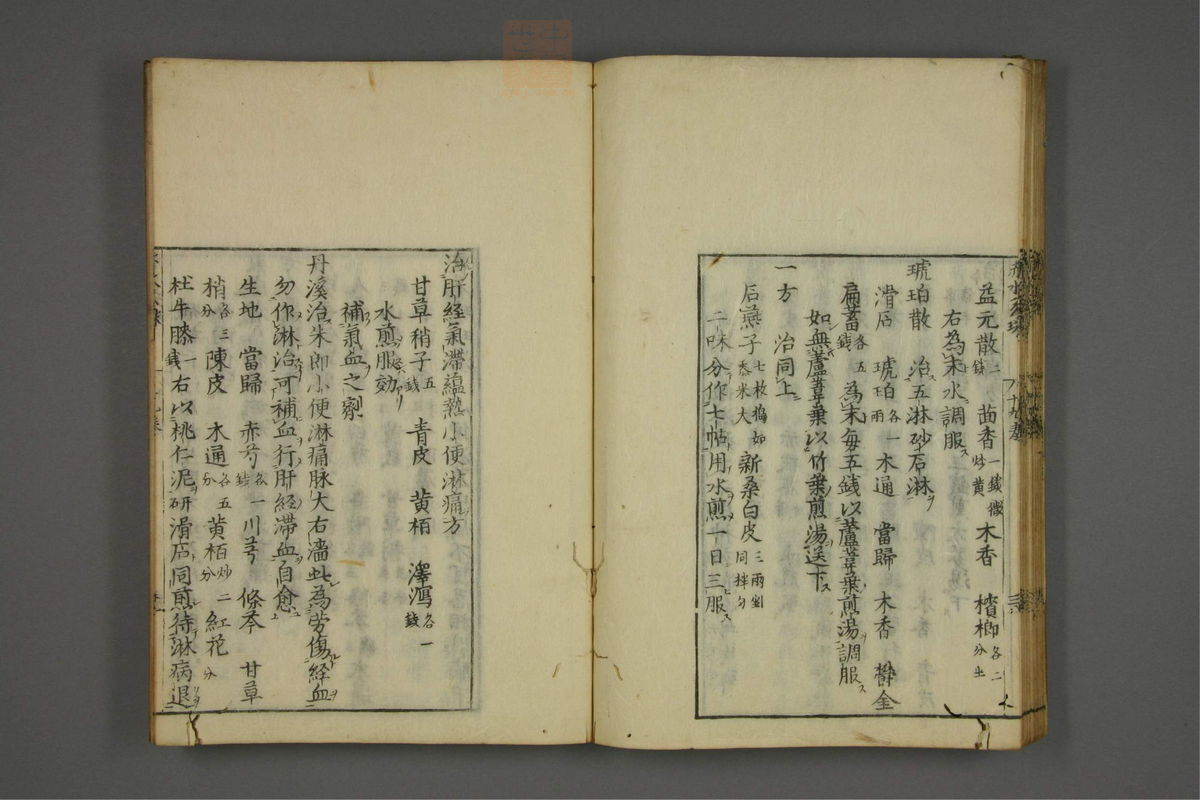 益元散二錢 茴香一錢微炒黄 木香 檳榔各二分半
右為末水調服
琥珀散 治五淋砂石淋
滑石 琥珀各一兩 木通 當歸 木香 欝金
扁蓄各五錢 為末每五錢以蘆葦葉煎湯調服
如無蘆葦葉以竹葉煎湯送下
一方 治同上
石燕子七枚搗如黍米大 新桑白皮三兩剉同拌勻
二味分作七帖用水煎一日三服
治肝経氣滯蘊熱小便淋痛方
甘草稍子五錢 青皮 黄栢 澤瀉各一錢
水煎服効
補氣血之劑
丹溪治朱郎小便淋痛脉大右濇此為勞傷経血
勿作淋治可補血行肝経滯血自愈
生地 當歸 赤芍各一錢 川芎 條芩 甘草
稍各三分 陳皮 木通各五分 黄栢炒二分 紅花分
杜牛膝一錢右以桃仁泥研滑石同煎待淋病退